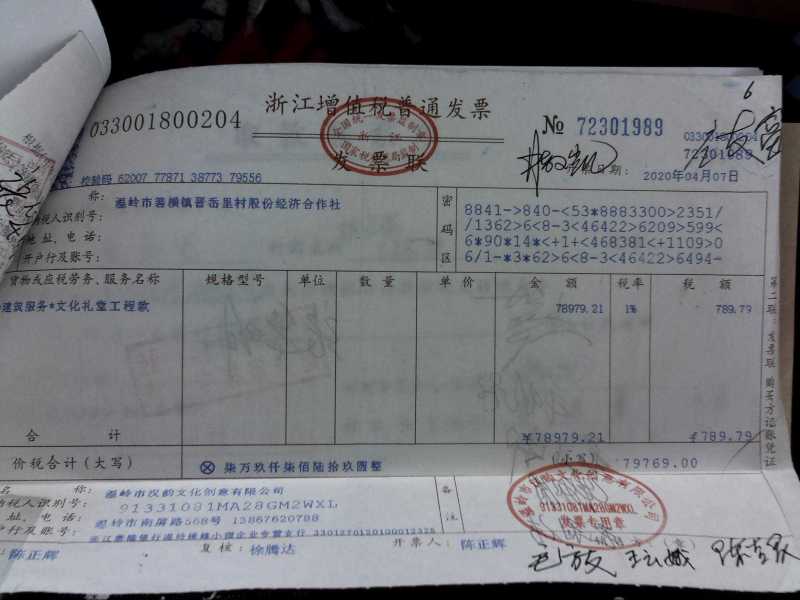 浙江增值税普通发票
033001800204
发票联
№ 72301989
033001800204
72301989
校验码 62007 77871 38773 79556
日期: 2020年04月07日
称: 温岭市箬横镇晋岙里村股份经济合作社
纳税人识别号:
地址、电话:
开户行及账号:
密码区
8841->840-<53*8883300>2351/
/1362>6<8-3<46422>6209>599<
6*90*14*<+1+<468381<+1109>0
6/1-*3*62>6<8-3<46422>6494-
货物或应税劳务、服务名称 规格型号 单位 数量 单价 金额 税率 税额
建筑服务*文化礼堂工程款 78979.21 1% 789.79
合计 ¥78979.21 ¥789.79
价税合计(大写) ⊗ 柒万玖仟柒佰陆拾玖圆整 (小写) 79769.00
第二联:发票联 购买方记账凭证
名称: 温岭市汉韵文化创意有限公司
纳税人识别号: 91331081MA28GM2WXL
地址、电话: 温岭市南屏路568号 13867620788
开户行及账号: 330127012010001232
备注
91331081MA28GM2WXL
发票专用章
陈正辉 复核: 徐腾达 开票人: 陈正辉 (章)
6